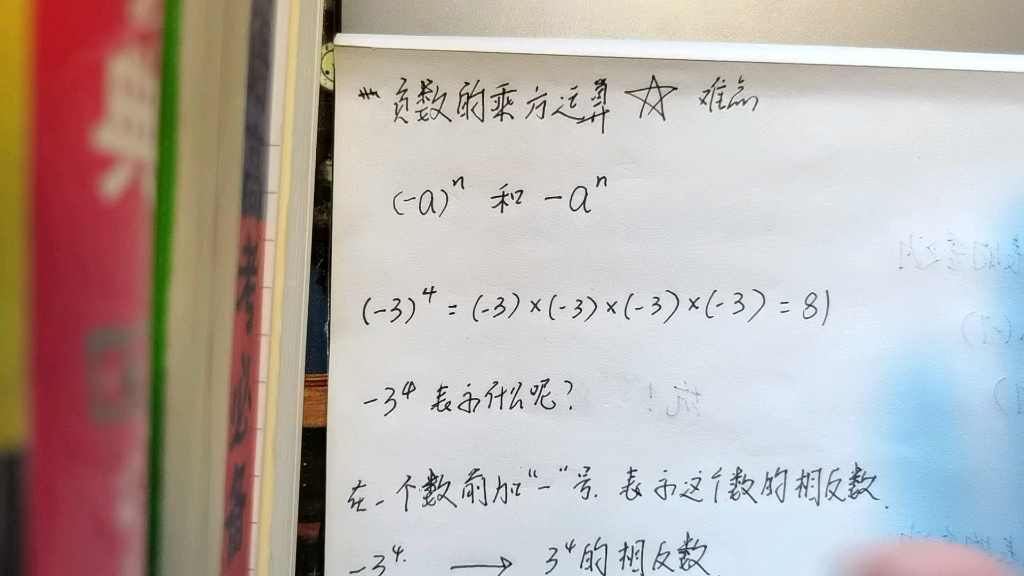 # 负数的乘方运算 ☆ 难点
(-a)ⁿ 和 -aⁿ
(-3)⁴ = (-3)×(-3)×(-3)×(-3) = 81
-3⁴ 表示什么呢?
在一个数前加“-”号.表示这个数的相反数.
-3⁴. → 3⁴的相反数
典
考必备
坑!